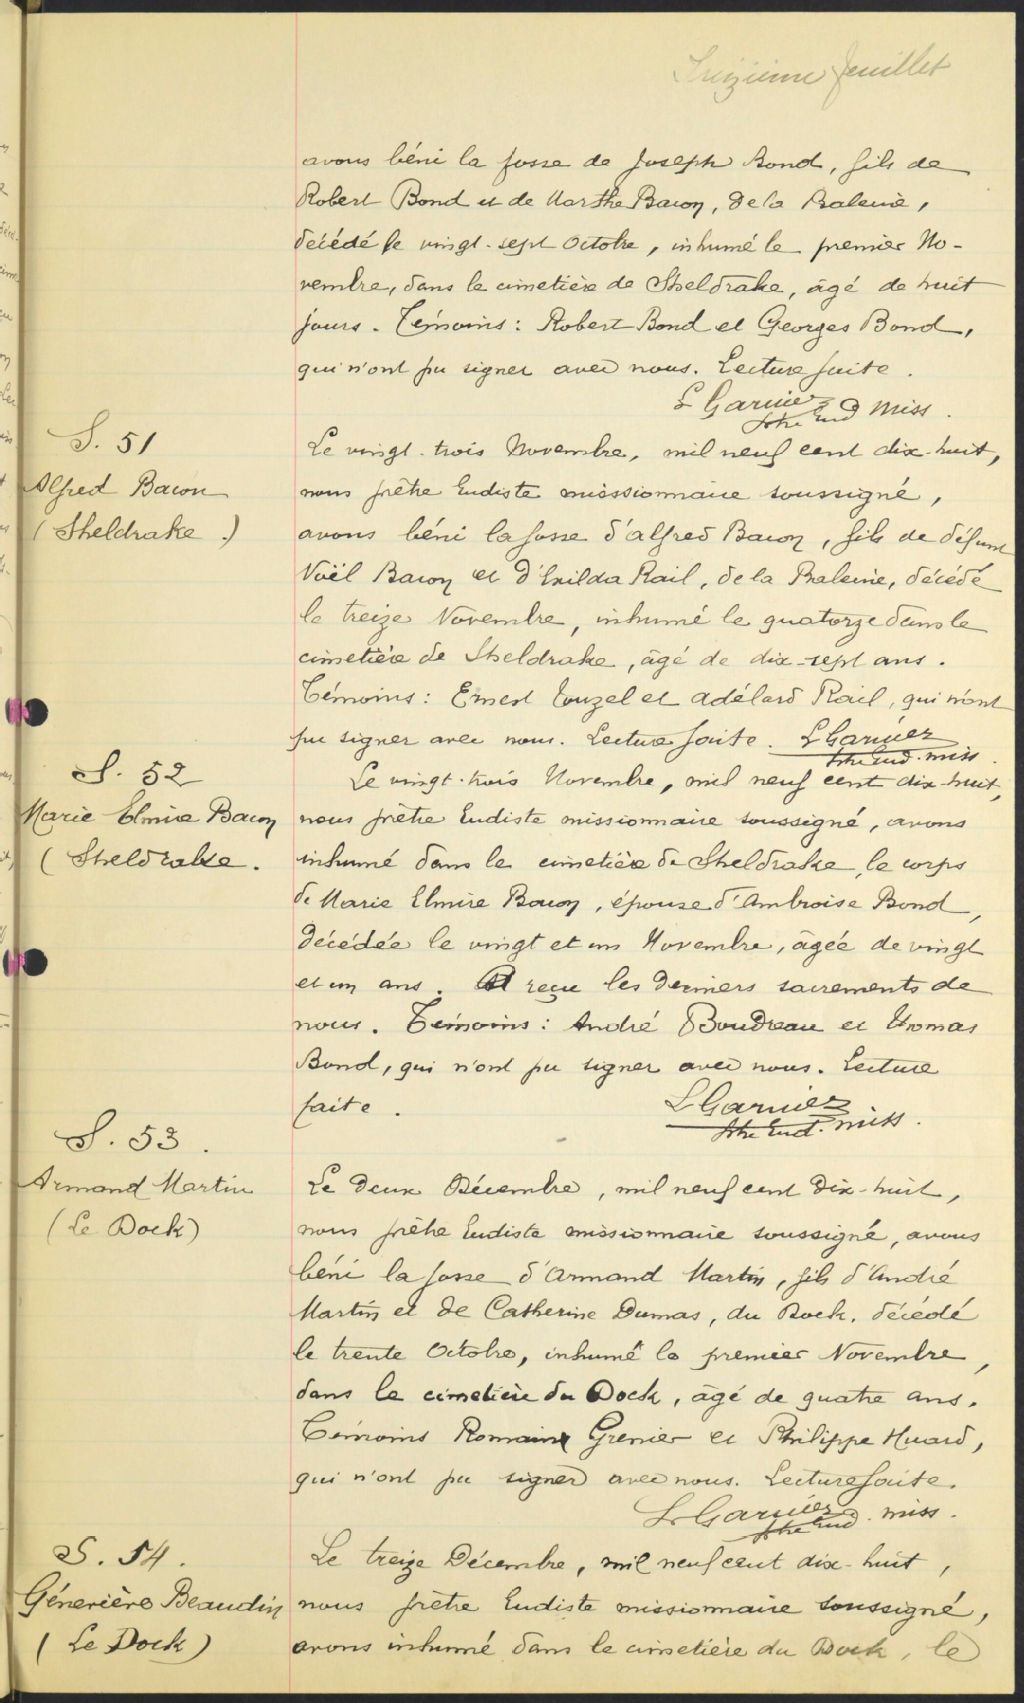 Treizième feuillet
avons béni la fosse de Joseph Bond, fils de
Robert Bond et de Marthe Bacon, de la Baleine,
décédé le vingt-sept Octobre, inhumé le premier No-
vembre, dans le cimetière de Sheldrake, âgé de huit
jours. Témoins: Robert Bond et Georges Bond,
qui n'ont pu signer avec nous. Lecture faite.
L Garnier
ptre Eud miss.
S. 51
Alfred Bacon
(Sheldrake.)
Le vingt-trois Novembre, mil neuf cent dix-huit,
nous prêtre Eudiste missionnaire soussigné,
avons béni la fosse d'Alfred Bacon, fils de défunt
Noël Bacon et d'Exilda Rail, de la Baleine, décédé
le treize Novembre, inhumé le quatorze dans le
cimetière de Sheldrake, âgé de dix-sept ans.
Témoins: Ernest Touzel et Adélard Rail, qui n'ont
pu signer avec nous. Lecture faite. L Garnier
ptre Eud. miss.
S. 52
Marie Elmire Bacon
(Sheldrake.
Le vingt-trois Novembre, mil neuf cent dix-huit,
nous prêtre Eudiste missionnaire soussigné, avons
inhumé dans le cimetière de Sheldrake, le corps
de Marie Elmire Bacon, épouse d'Ambroise Bond,
décédée le vingt et un Novembre, âgée de vingt
et un ans. A reçu les derniers sacrements de
nous. Témoins: André Boudreau et Thomas
Bond, qui n'ont pu signer avec nous. Lecture
faite. L Garnier
ptre Eud. miss.
S. 53.
Armand Martin
(Le Dock)
Le deux Décembre, mil neuf cent dix-huit,
nous prêtre Eudiste missionnaire soussigné, avons
béni la fosse d'Armand Martin, fils d'André
Martin et de Catherine Dumas, du Dock, décédé
le trente Octobre, inhumé le premier Novembre,
dans le cimetière du Dock, âgé de quatre ans.
Témoins Romain Grenier et Philippe Huard,
qui n'ont pu signer avec nous. Lecture faite.
L Garnier
ptre Eud. miss.
S. 54.
Génevière Beaudin
(Le Dock)
Le treize Décembre, mil neuf cent dix-huit,
nous prêtre Eudiste missionnaire soussigné,
avons inhumé dans le cimetière du Dock, le